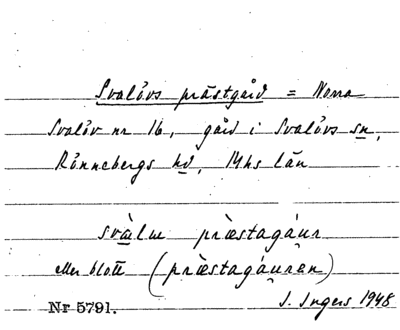 Svalövs prästgård = Norra
Svalöv nr 16, gård i Svalövs sn,
Rönnebergs hd, Mhs län
svàlne prìestagáur
eller blott (prìestagáuren)
Nr 5791. I. Ingers 1948